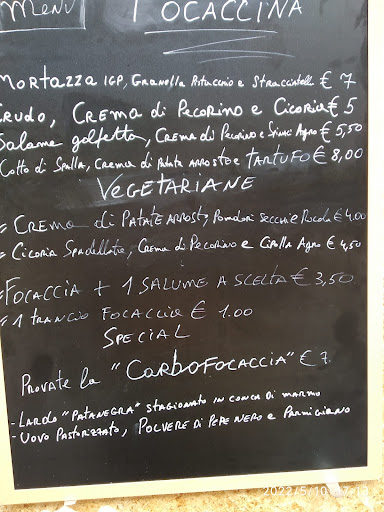 Menu
FOCACCINA
Mortazza IGP, Granella Pistacchio e Stracciatella € 7
Crudo, Crema di Pecorino e Cicoria € 5
Salame golfetta, Crema di Pecorino e Spinaci Agro € 5,50
Cotto di Spalla, Crema di Patata arrosto e TARTUFO € 8,00
VEGETARIANE
= CREMA di PATATE ARROSTO, Pomodori secchi e Rucola € 4.00
= Cicoria Spadellata, Crema di Pecorino e Cipolla Agro € 4,50
= FOCACCIA + 1 SALUME A SCELTA € 3,50
= 1 TRANCIO FOCACCIA € 1.00
SPECIAL
PROVATE la "CARBOFOCACCIA" € 7
- LARDO "PATANEGRA" STAGIONATO IN CONCA DI MARMO
- UOVO PASTORIZZATO, POLVERE DI PEPE NERO e PARMIGIANO